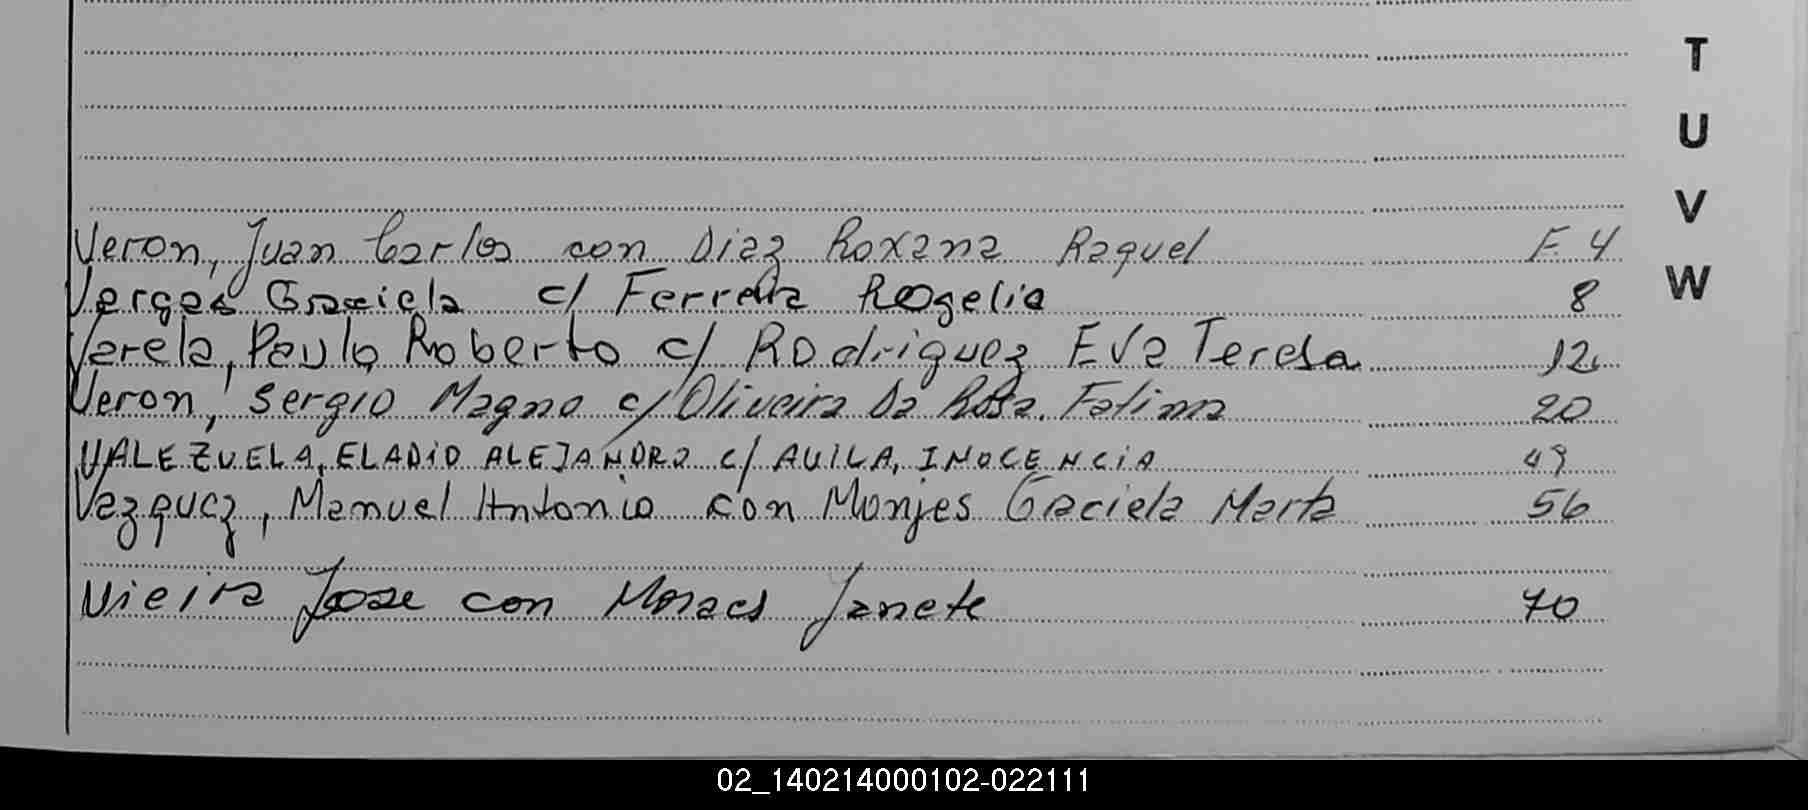 T
U
V
W
Veron, Juan Carlos con Diaz Roxana Raquel F. 4
Verges Graciela c/ Ferreira Rogelio 8
Varela, Paulo Roberto c/ Rodriguez Eva Teresa 12
Veron, Sergio Magno c/ Oliveira Da Rosa. Fatima 20
VALEZUELA, ELADIO ALEJANDRO c/ AVILA, INOCENCIA 49
Vazquez, Manuel Antonio con Monjes Graciela Marta 56
Vieira Jose con Moraes Janete 70
02_140214000102-022111